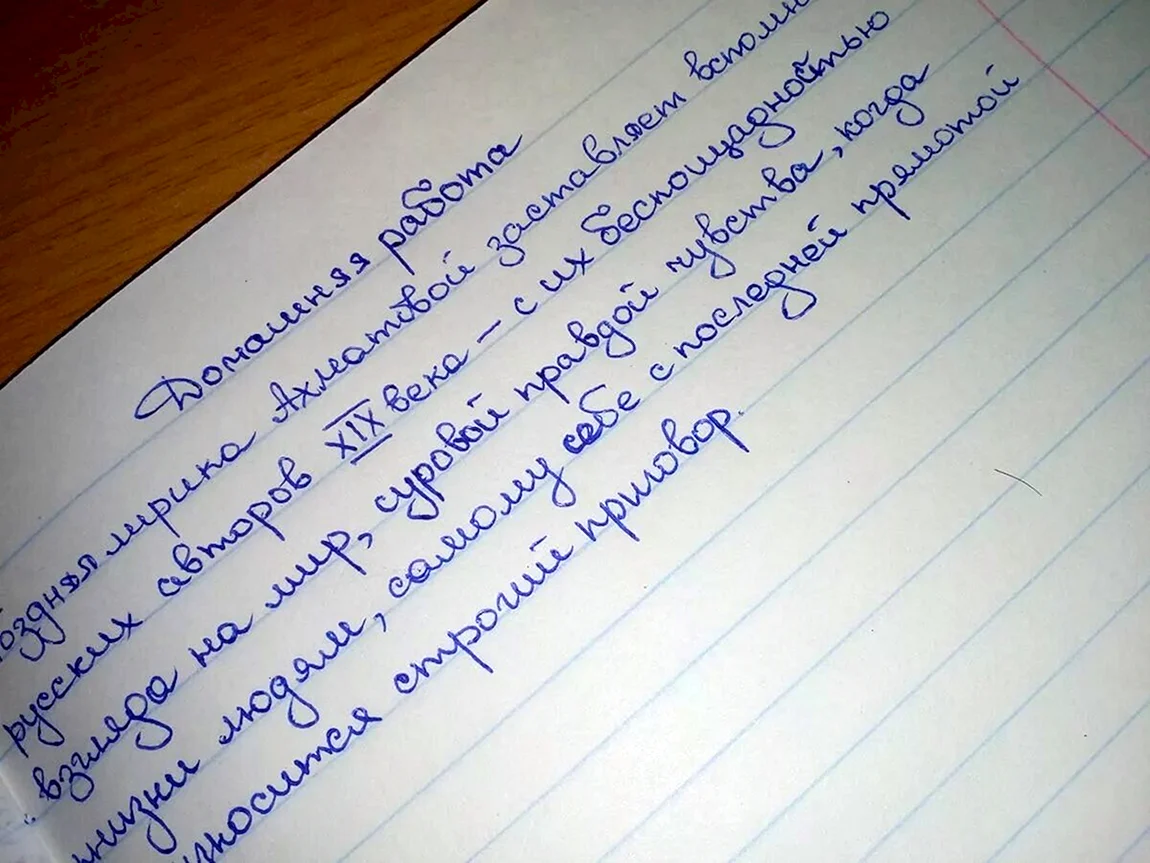 Домашняя работа
оздняя лирика Ахматовой заставляет вспомн
русских авторов XIX века – с их беспощадностью
взгляда на мир, суровой правдой чувства, когда
жизни людям, самому себе с последней прямотой
зносится строгий приговор.